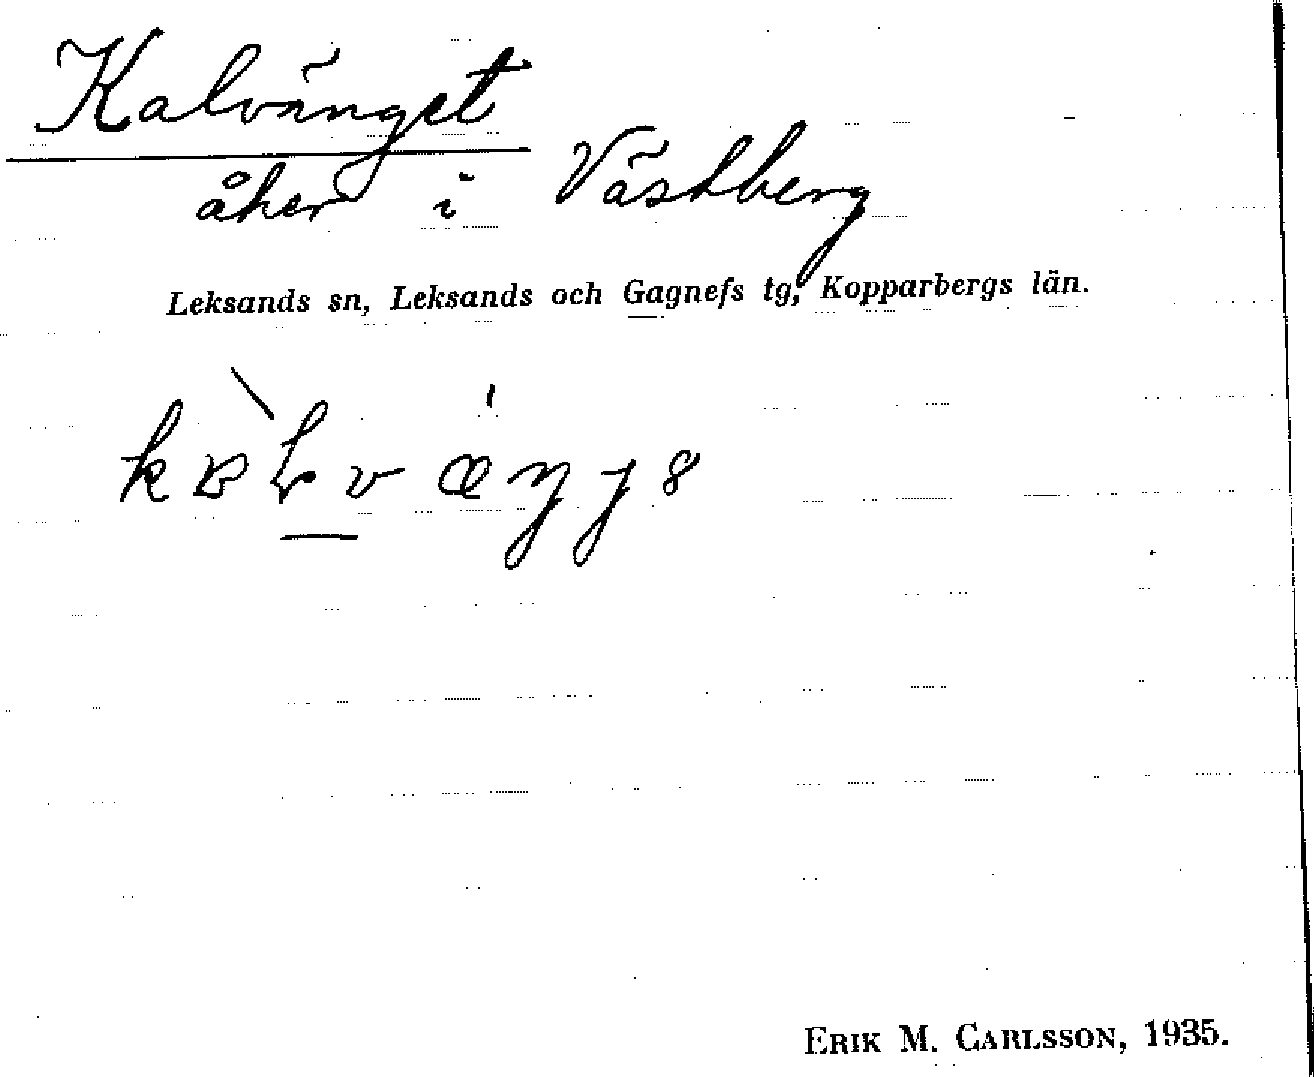 Kalvänget
åker i Västberg
Leksands sn, Leksands och Gagnefs tg, Kopparbergs län.
ERIK M. CARLSSON, 1935.